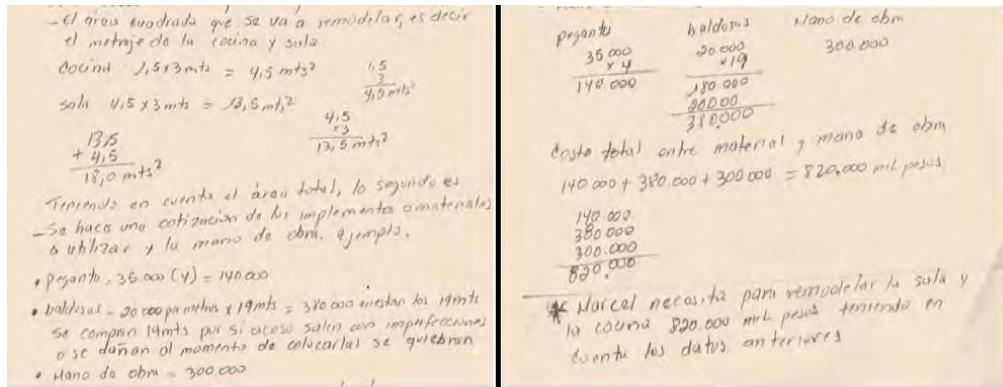 - El área cuadrada que se va a remodelar, es decir
el metraje de la cocina y sala
Cocina 1,5x3 mts = 4,5 mts²
1,5
3
4,5 mts²
sala 4,5 x 3 mts = 13,5 mts²
4,5
x3
13,5 mts²
13,5
+ 4,5
18,0 mts²
Teniendo en cuenta el área total, lo segundo es
- Se hace una cotización de los implementos o materiales
a utilizar y la mano de obra. Ejemplo.
• Pegante = 35.000 (4) = 140.000
• baldosas = 20.000 por metros x 19 mts = 380.000 cuestan los 19 mts
Se compran 19 mts por si acaso salen con imperfecciones
o se dañan al momento de colocarlas se quiebran
• Mano de obra = 300.000
pegante
35.000
x 4
140.000
baldosas
20.000
x 19
180.000
20000
380.000
Mano de obra
300.000
Costo total entre material y mano de obra
140.000 + 380.000 + 300.000 = 820.000 mil pesos
140.000
380.000
300.000
820.000
* Marcel necesita para remodelar la sala y
la cocina 820.000 mil pesos teniendo en
cuenta los datos anteriores